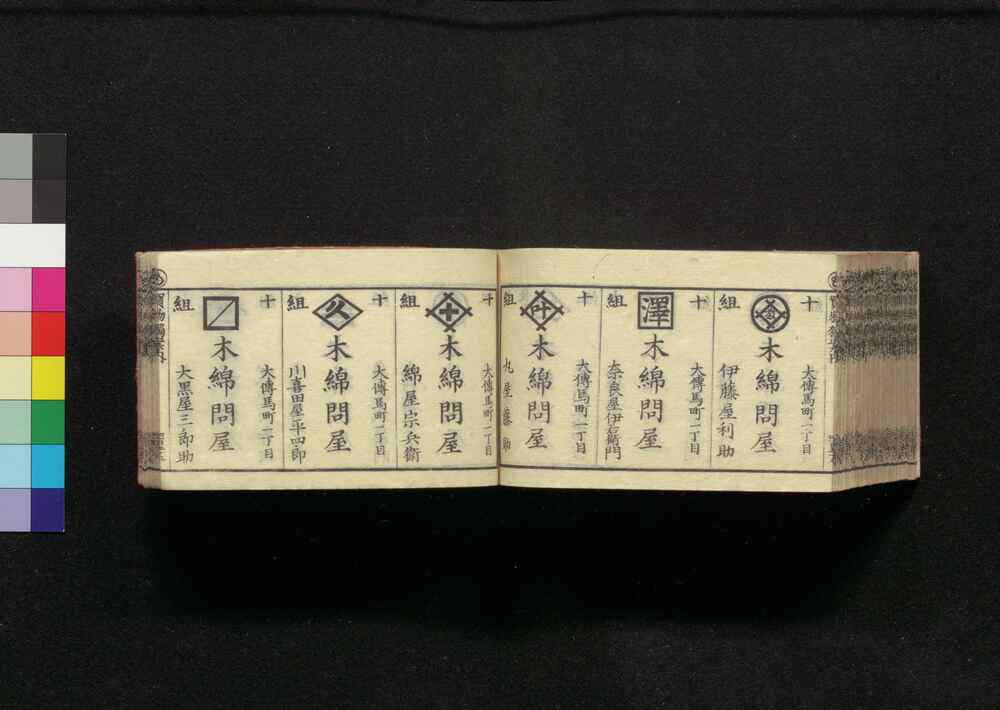 十
組
大傳馬町一丁目
木綿問屋
伊藤屋利助
十
組
澤
大傳馬町一丁目
木綿問屋
奈良屋伊右衞門
十
組
叶
大傳馬町一丁目
木綿問屋
丸屋藤助
十
組
大傳馬町一丁目
木綿問屋
綿屋宗兵衞
十
組
久
大傳馬町一丁目
木綿問屋
川喜田屋平四郎
十
組
大傳馬町一丁目
木綿問屋
大黒屋三郎助